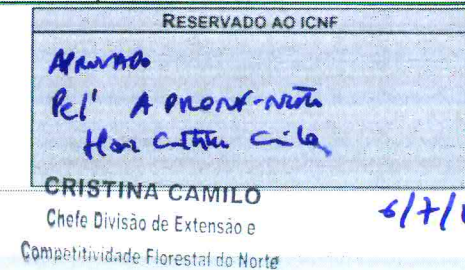 RESERVADO AO ICNF
APROVADO
Pel'
CRISTINA CAMILO
6/7/1
Chefe Divisão de Extensão e
Competitividade Florestal do Norte